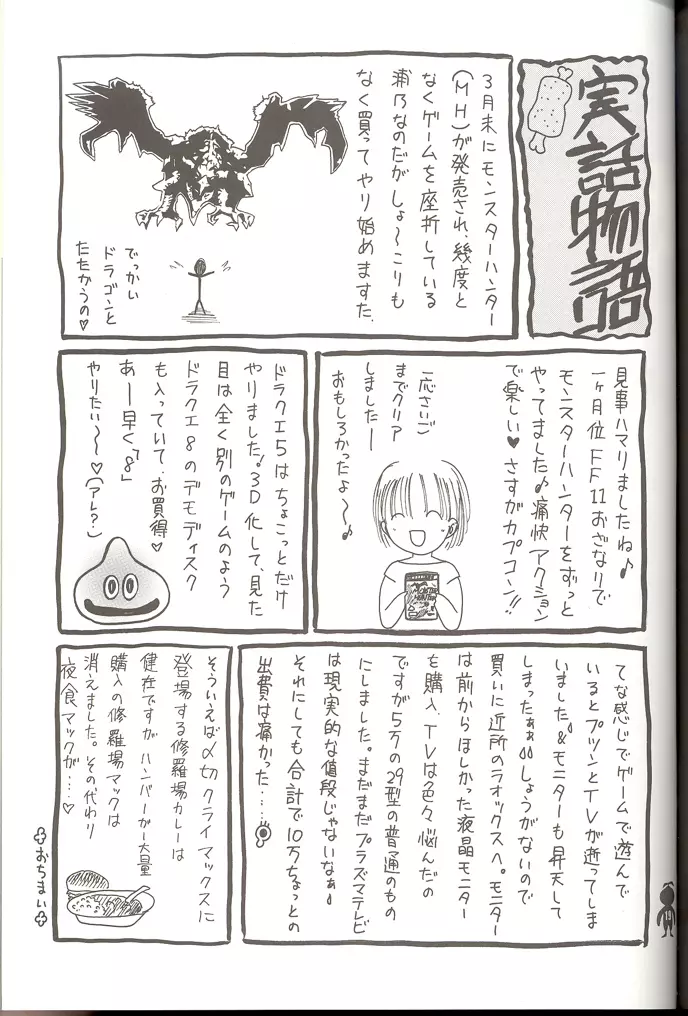 実話物語
3月末にモンスターハンター
(MH)が発売され、幾度と
なくゲームを座折している
浦乃なのだがしょ〜こりも
なく買ってやり始めますた.
でっかい
ドラゴンと
たたかうの♥
見事ハマりましたね♪
一ヶ月位FF11おざなりで
モンスターハンターをずっと
やってました♪痛快アクション
で楽しい♥さすがカプコン!!
一応さいご
までクリア
しましたー
おもしろかったよ〜♪
MONSTER
HUNTER
ドラクエ5はちょこっとだけ
やりました!3D化して、見た
目は全く別のゲームのよう
ドラクエ8のデモディスク
も入っていて、お買得♥
あー早く「8」
やりたい〜〜♥(アレ?)
てな感じでゲームで遊んで
いるとプツンとTVが逝ってしま
いました。&モニターも昇天して
しまったぁぁ しょうがないので
買いに近所のラオックスへ。モニター
は前からほしかった液晶モニター
を購入、TVは色々悩んだの
ですが5万の29型の普通のもの
にしました。まだまだプラズマテレビ
は現実的な値段じゃないなぁ
それにしても合計で10万ちょっとの
出費は痛かった……
そういえば〆切クライマックスに
登場する修羅場カレーは
健在ですがハンバーガー大量
購入の修羅場マックは
消えました。その代わり
夜食マックが……♥
おちまい
19